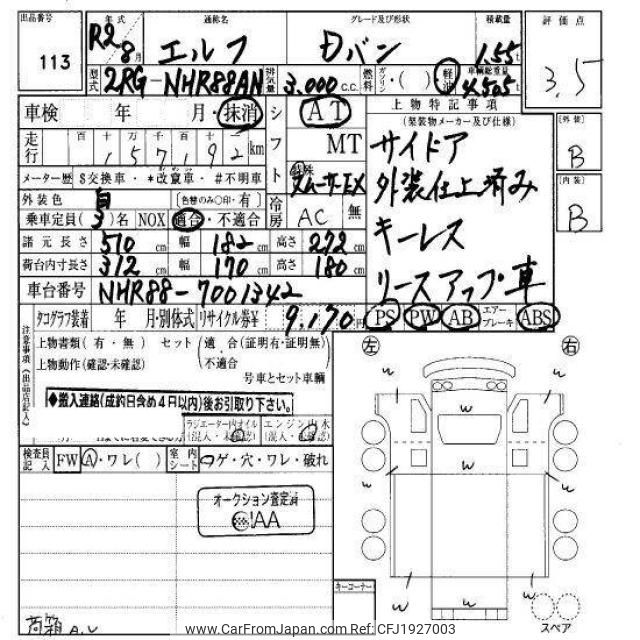 出品番号
113
年式
R2 8月
通称名
エルフ
グレード及び形状
Dバン
積載量
1.55t
評価点
3.5
型式
2RG-NHR88AN
排気量
3.000 C.C.
燃料
ガソリン・( )
軽油
車輌総重量
4,505t
車検 年 月・抹消
シフト
AT
MT
上物特記事項
(架装物メーカー及び仕様)
サイドア
外装仕上済み
キーレス
リースアップ車
外装
B
内装
B
走行
百 十 万 千 百 十 一
157,192 km
メーター歴 $交換車・*改竄車・#不明車
特殊
スムーサーEX
外装色
自
(色替のみ○印・有)
冷房
AC 無
乗車定員(3)名 NOX 適合・不適合
諸元長さ 510 cm 幅 182 cm 高さ 272 cm
荷台内寸長さ 312 cm 幅 170 cm 高さ 180 cm
車台番号 NHR88-7001342
タコグラフ装着 年 月・別体式 リサイクル券¥ 9,170円
PS PW AB エアーブレーキ ABS
注意事項(出品店記入)
上物書類(有・無) セット(適合(証明有・証明無)
上物動作(確認・未確認) (不適合
号車とセット車輌
◆搬入連絡(成約日含め4日以内)後お引取り下さい。
ラジエーター内オイル
(混入・未確認)
エンジン内水
(混入・未確認)
検査員記入
FW A・ワレ( )
室内シート
コゲ・穴・ワレ・破れ
オークション査定済
IAA
左
右
w
w
w
w
w
w
w
w
w
w
w
キーコーナー
スペア
荷箱 A.U
www.CarFromJapan.com Ref: CFJ1927003